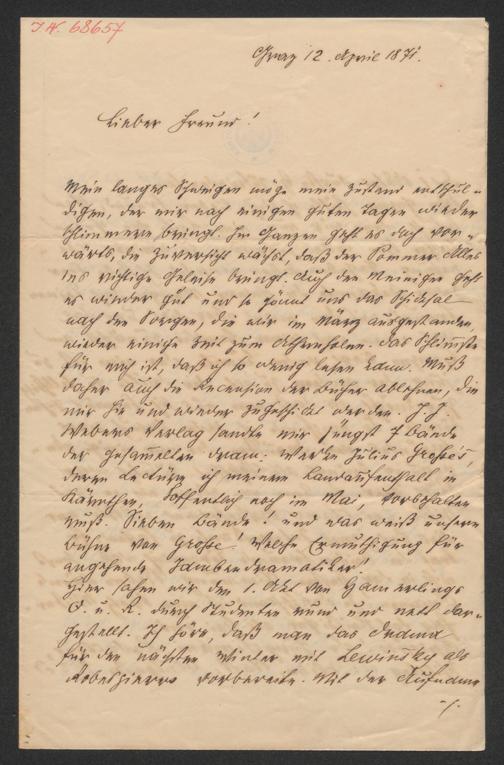 I.N. 68657
Graz 12. April 1871.
Lieber Freund!
Mein langes Schweigen möge mein Zustand entschul-
digen, der mir nach einigen guten Tagen wieder
schlimmere bringt. Im Ganzen geht es doch vor-
wärts, die Zuversicht wächst, daß der Sommer Alles
ins richtige Geleise bringt. Auch den Meinigen geht
es wieder gut und so gönnt uns das Schicksal
nach den Sorgen, die wir im März ausgestanden,
wieder einige Zeit zum Athemholen. Das Schlimmste
für mich ist, daß ich so wenig lesen kann. Muß
daher auch die Recension der Bücher ablehnen, die
mir hie und wieder zugeschickt werden. J. J.
Webers Verlag sandte mir jüngst 7 Bände
der gesamelten dram: Werke Julius Grosse's,
deren Lectüre ich meinem Landaufenthalt in
Kärnthen, hoffentlich noch im Mai, vorbehalten
muß. Sieben Bände! und was weiß unsere
Bühne von Grosse! Welche Ermuthigung für
angehende Jambendramatiker!
Hier sahen wir den 1. Akt von Hamerlings
D. u. R. durch Studenten rund und nett dar-
gestellt. Ich höre, daß man das Drama
für den nächsten Winter mit Lewinsky als
Robespierre vorbereite. Mit der Aufnahme
-/.